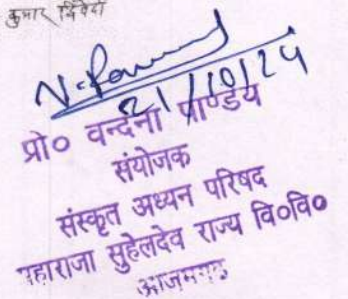 कुमार द्विवेदी
21/10/24
प्रो० वन्दना पाण्डेय
संयोजक
संस्कृत अध्यन परिषद
महाराजा सुहेलदेव राज्य वि०वि०
आजमगढ़